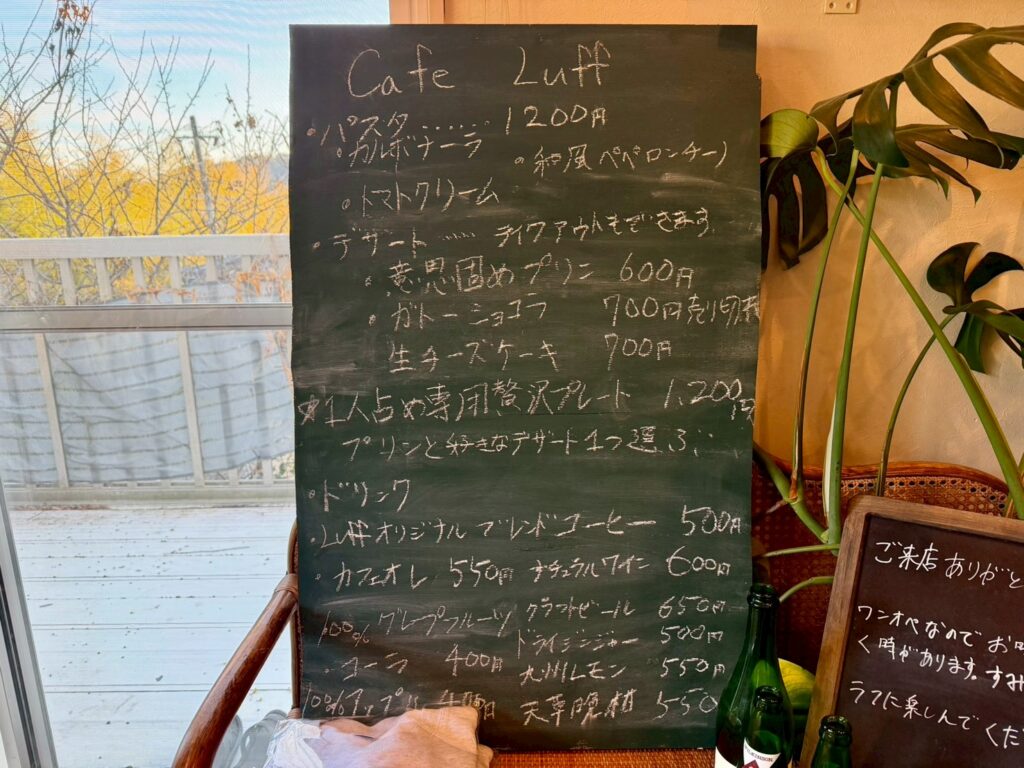 Cafe Luff
・パスタ……1200円
・カルボナーラ ・和風ペペロンチーノ
・トマトクリーム
・デザート…… テイクアウトもできます。
・意思固めプリン 600円
・ガトーショコラ 700円 売り切れ
生チーズケーキ 700円
☆1人占め専用贅沢プレート 1,200円
プリンと好きなデザート1つ選ぶ
・ドリンク
・Luffオリジナルブレンドコーヒー 500円
・カフェオレ 550円 ナチュラルワイン 600円
100% グレープフルーツ クラフトビール 650円
ドライジンジャー 500円
・コーラ 400円 九州レモン 550円
100%アップル 天草晩柑 550
ご来店ありがと
ワンオペなので お
く時があります。すみ
ラフに楽しんでくだ